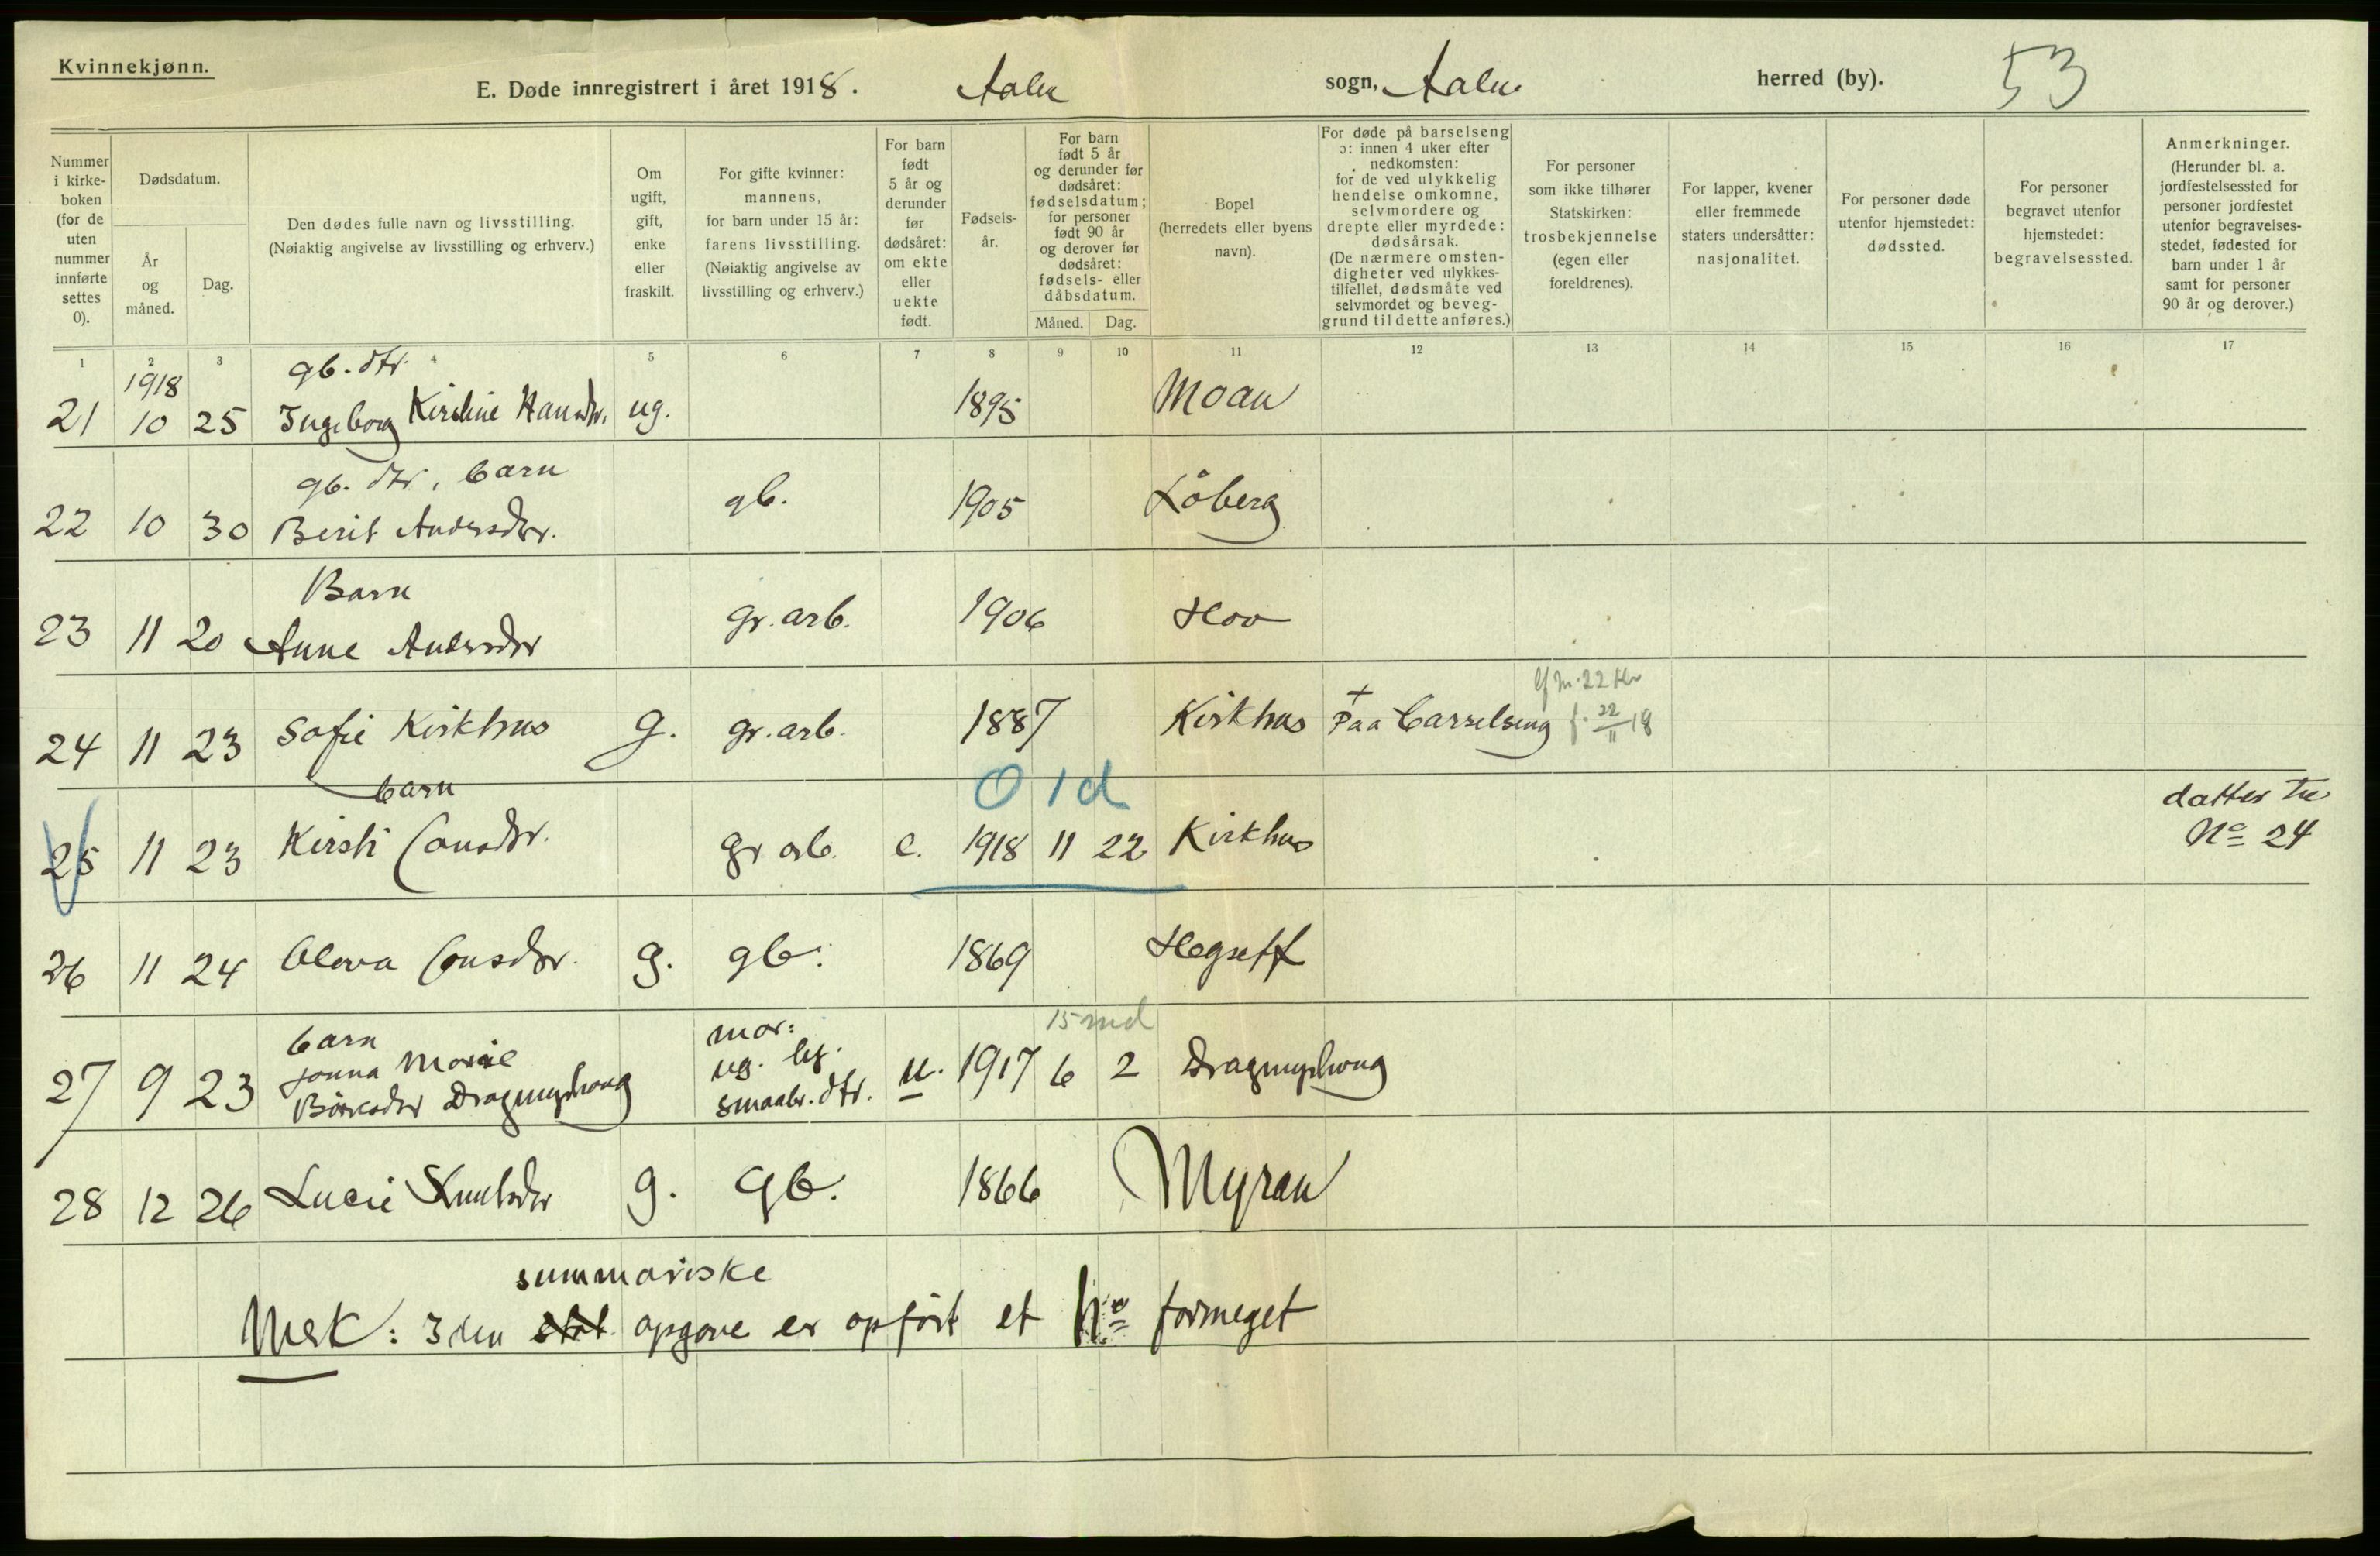 Kvinnekjønn.
E. Døde innregistrert i året 1918. Aalen sogn, Aalen herred (by). 53
Nummer i kirke-boken (for de uten nummer innførte settes 0).
Dødsdatum.
År og måned.
Dag.
Den dødes fulle navn og livsstilling.
(Nøiaktig angivelse av livsstilling og erhverv.)
Om ugift, gift, enke eller fraskilt.
For gifte kvinner: mannens, for barn under 15 år: farens livsstilling. (Nøiaktig angivelse av livsstilling og erhverv.)
For barn født 5 år og derunder før dødsåret: om ekte eller uekte født.
Fødsels-år.
For barn født 5 år og derunder før dødsåret: fødselsdatum; for personer født 90 år og derover før dødsåret: fødsels- eller dåbsdatum.
Måned. Dag.
Bopel (herredets eller byens navn).
For døde på barselseng ɔ: innen 4 uker efter nedkomsten: for de ved ulykkelig hendelse omkomne, selvmordere og drepte eller myrdede: dødsårsak. (De nærmere omsten-digheter ved ulykkes-tilfellet, dødsmåte ved selvmordet og beveg-grund til dette anføres.)
For personer som ikke tilhører Statskirken: trosbekjennelse (egen eller foreldrenes).
For lapper, kvener eller fremmede staters undersåtter: nasjonalitet.
For personer døde utenfor hjemstedet: dødssted.
For personer begravet utenfor hjemstedet: begravelsessted.
Anmerkninger. (Herunder bl. a. jordfestelsessted for personer jordfestet utenfor begravelses-stedet, fødested for barn under 1 år samt for personer 90 år og derover.)
1 2 3 4 5 6 7 8 9 10 11 12 13 14 15 16 17
1918 gb. dtr.
21 10 25 Ingeborg Kirstine Hansdr. ug. 1895 Moan
gb. dtr, barn
22 10 30 Berit Andersdtr. gb. 1905 Låberg
Barn
23 11 20 Anne Andersdtr gr. arb. 1906 Hov
24 11 23 Sofie Kirkhus g. gr. arb. 1887 Kirkhus + Paa barselseng f. 22/11 18
barn 0 1 d datter til
25 11 23 Kirsti Jonsdtr. gr arb. e. 1918 11 22 Kirkhus No 24
26 11 24 Olova Jonsdtr. g. gb. 1869 Hegsett
barn mor: 15 md
27 9 23 Jonna Marie ug. u. 1917 6 2 Dragmyrhaug
Dragmyrhaug smaabr. dtr.
28 12 26 Lucie Knutsdtr g. gb. 1866 Myran
summariske
Merk: I den stat. opgave er opført et No formeget